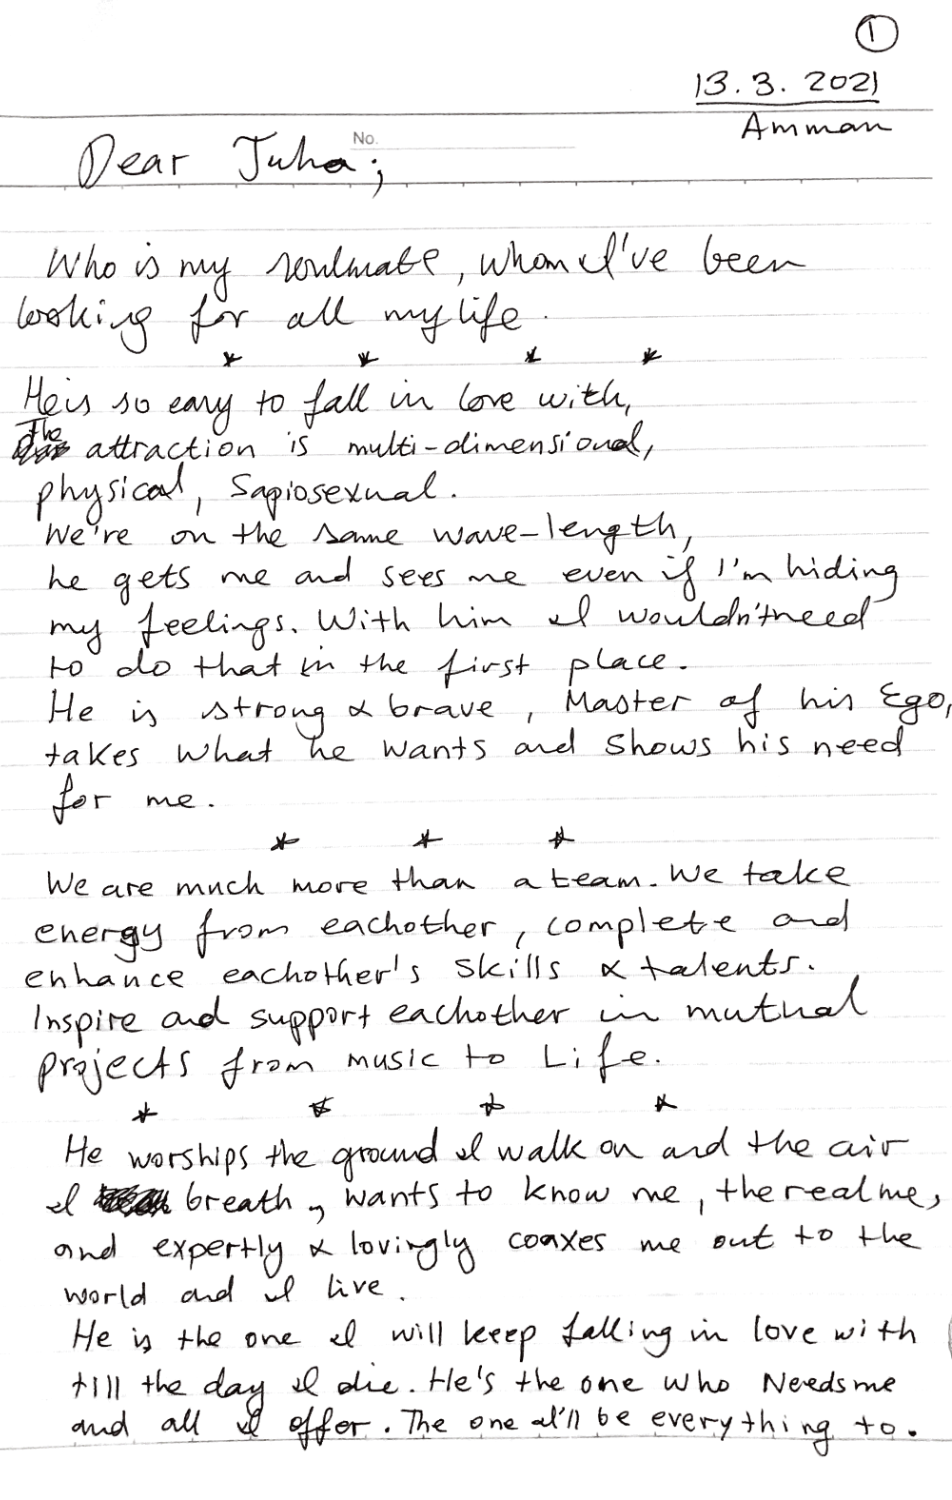 ①
13.3.2021
Amman
No.
Dear Juha;
Who is my soulmate, whom I've been
looking for all my life.
* * * *
He is so easy to fall in love with,
The attraction is multi-dimensional,
physical, Sapiosexual.
We're on the same wave-length,
he gets me and sees me even if I'm hiding
my feelings. With him I wouldn't need
to do that in the first place.
He is strong & brave, Master of his Ego,
takes what he wants and shows his need
for me.
* * *
We are much more than a team. We take
energy from eachother, complete and
enhance eachother's skills & talents.
Inspire and support eachother in mutual
projects from music to Life.
* * * *
He worships the ground I walk on and the air
I breath, wants to know me, the real me,
and expertly & lovingly coaxes me out to the
world and I live.
He is the one I will keep falling in love with
till the day I die. He's the one who Needs me
and all I offer. The one I'll be everything to.